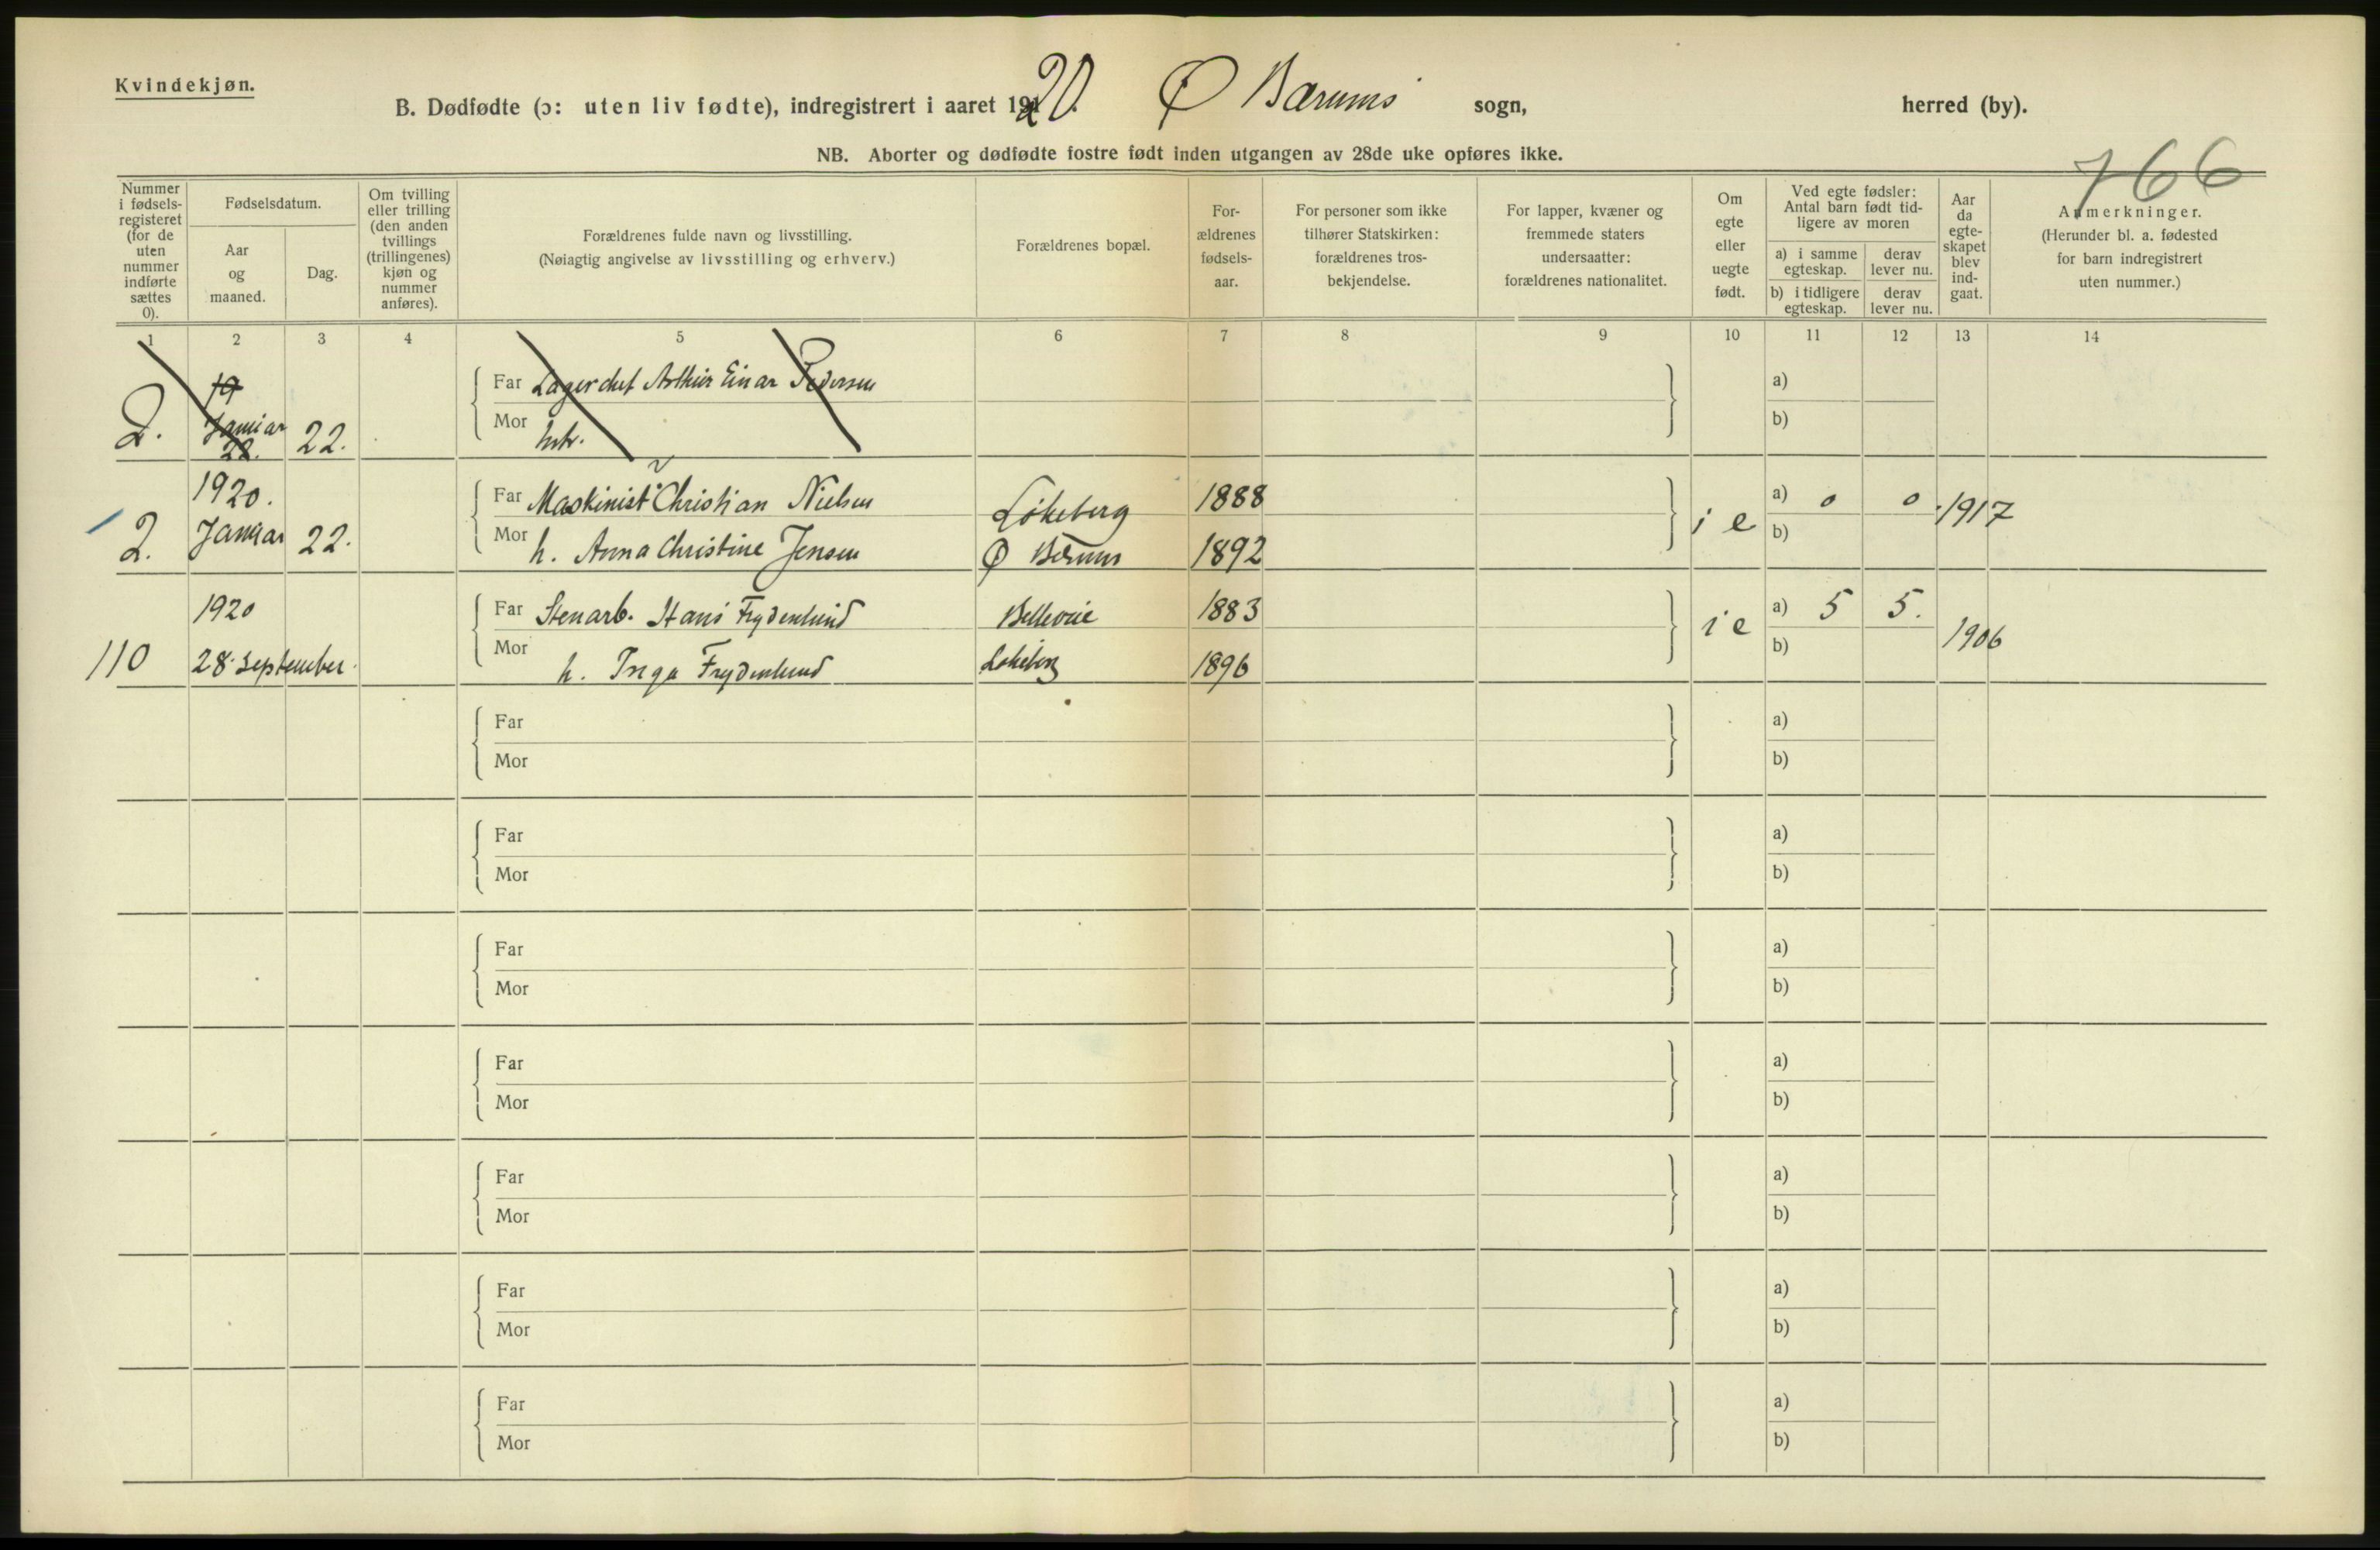 Kvindekjøn.
B. Dødfødte (ɔ: uten liv fødte), indregistrert i aaret 1920. Ø Bærums sogn, herred (by).
NB. Aborter og dødfødte fostre født inden utgangen av 28de uke opføres ikke.
766
Nummer i fødsels-registeret (for de uten nummer indførte sættes 0).
Fødselsdatum.
Aar og maaned.
Dag.
Om tvilling eller trilling (den anden tvillings (trillingenes) kjøn og nummer anføres).
Forældrenes fulde navn og livsstilling.
(Nøiagtig angivelse av livsstilling og erhverv.)
Forældrenes bopæl.
For-ældrenes fødsels-aar.
For personer som ikke tilhører Statskirken: forældrenes tros-bekjendelse.
For lapper, kvæner og fremmede staters undersaatter: forældrenes nationalitet.
Om egte eller uegte født.
Ved egte fødsler: Antal barn født tid-ligere av moren
a) i samme egteskap.
derav lever nu.
b) i tidligere egteskap.
derav lever nu.
Aar da egte-skapet blev ind-gaat.
Anmerkninger.
(Herunder bl. a. fødested for barn indregistrert uten nummer.)
1 2 3 4 5 6 7 8 9 10 11 12 13 14
19
Far Lagerchef Arthur Einar Pedersen a)
2. Januar 22. 22. Mor b)
1920.
Far Maskinist Christian Nielsen Løkeberg 1888 i e a) 0 0 1917
2. Januar 22. Mor h. Anna Christine Jensen Ø Bærum 1892 b)
1920
Far Stenarb. Hans Frydenlund Bellevue 1883 i e a) 5 5. 1906
110 28 September. Mor h. Inga Frydenlund Løkeberg 1896 b)
Far a)
Mor b)
Far a)
Mor b)
Far a)
Mor b)
Far a)
Mor b)
Far a)
Mor b)
Far a)
Mor b)
Far a)
Mor b)